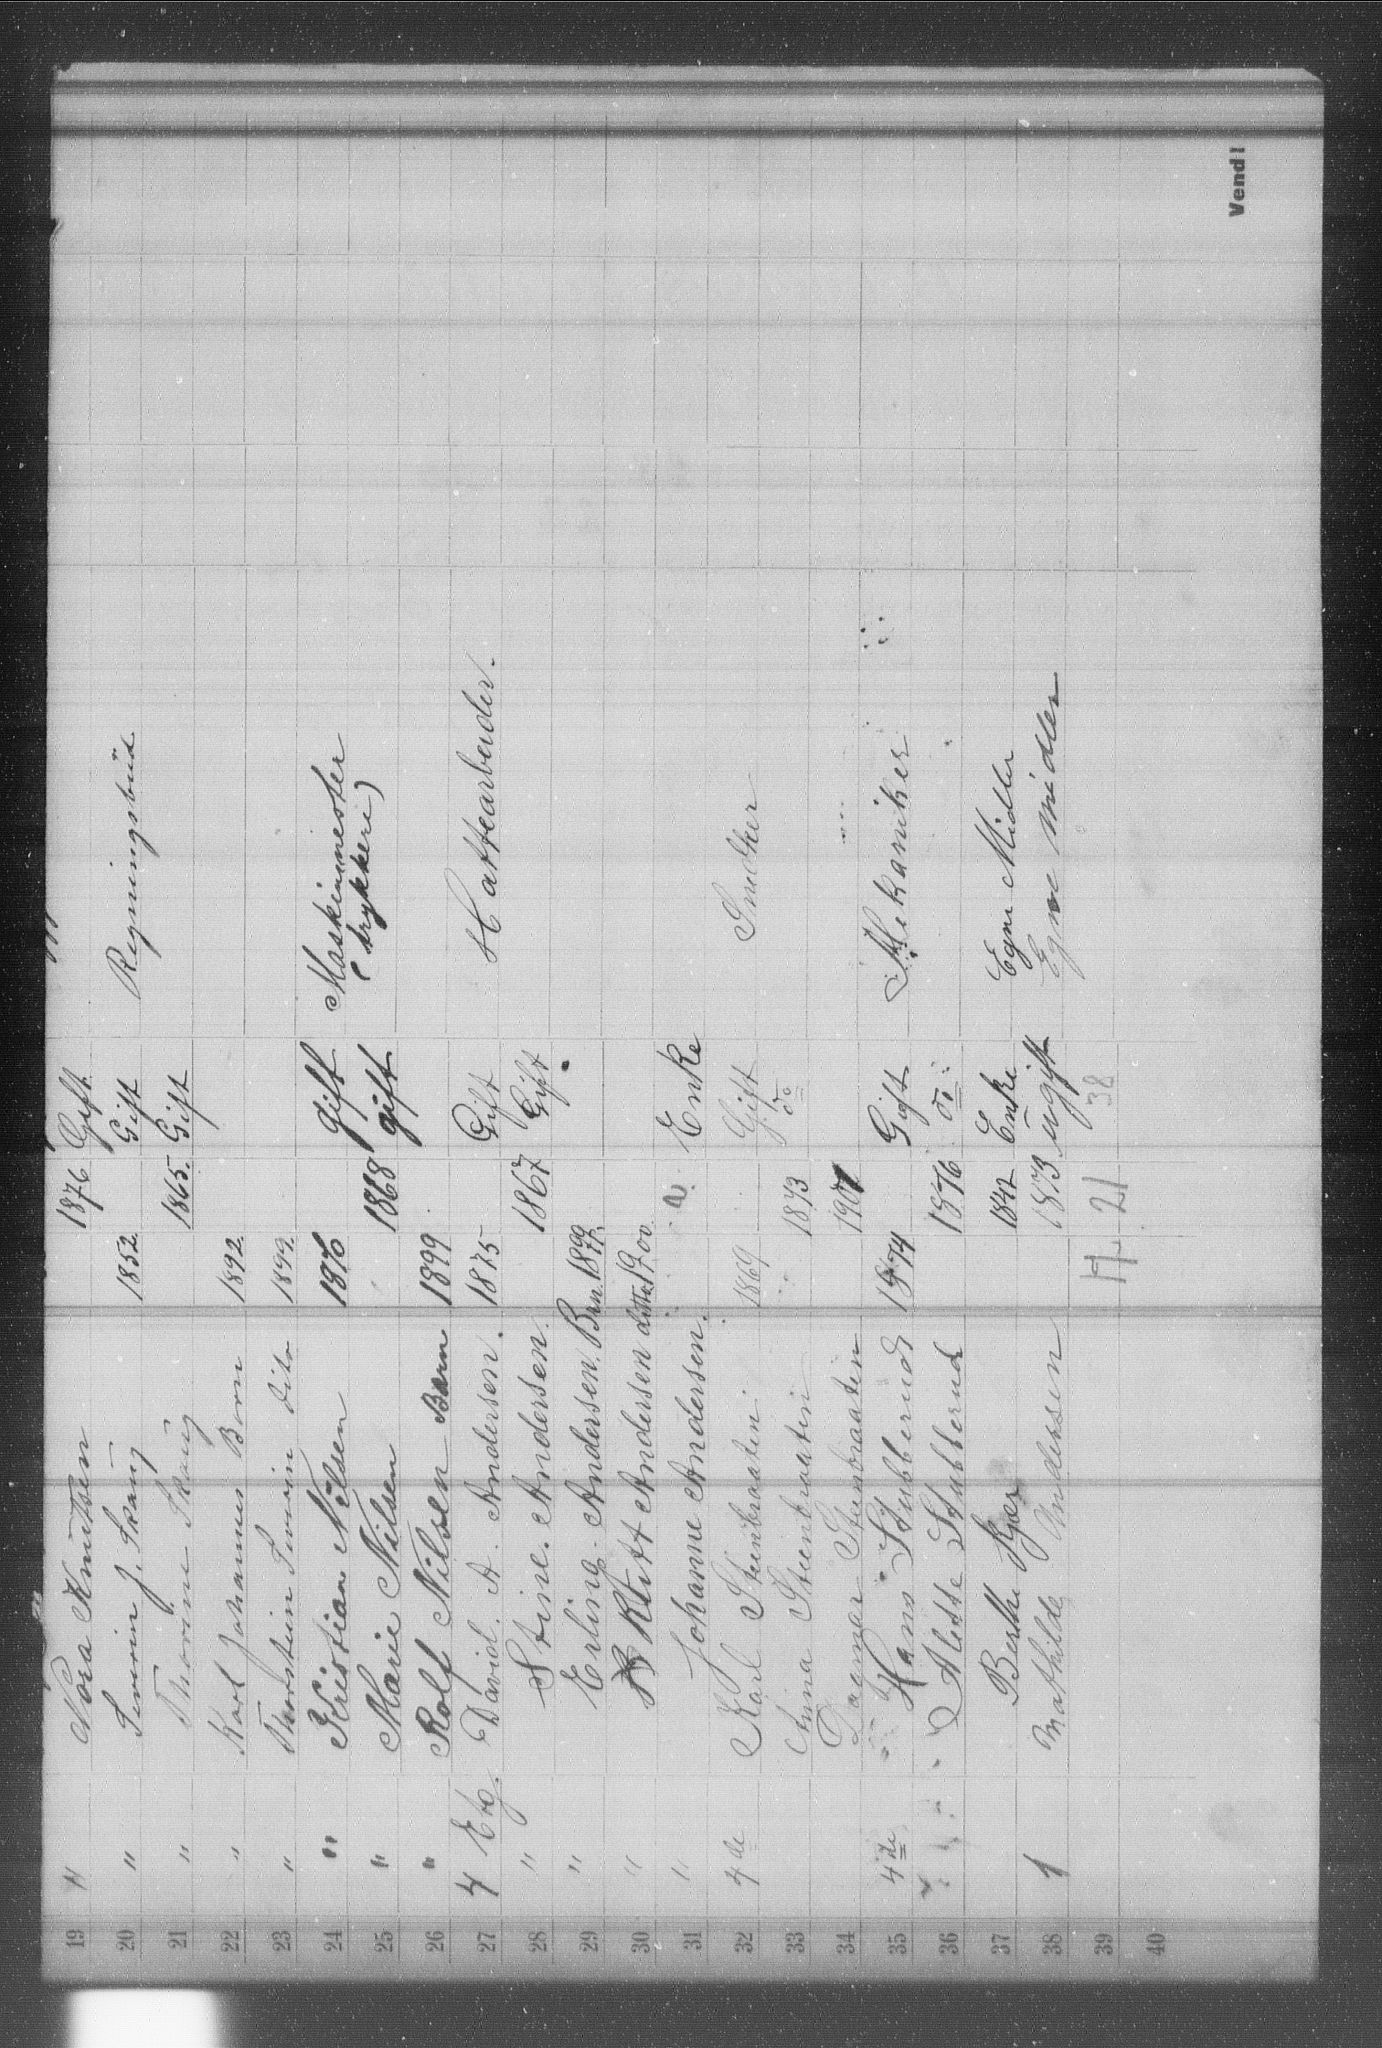 19 " Nora Knudsen 1876 Gift
20 " Severin J. Skaug 1852 Gift Regningsbud
21 " Thorine Skaug 1865. Gift
22 " Karl Johannes Born 1892
23 " Thorstein Severin dito 1899
24 " Kristian Nilsen 1876 gift Maskinmester
(trykkeri)
25 " Marie Nilsen 1868 gift
26 " Rolf Nilsen Barn 1899
27 4 Etg. David. A. Andersen. 1875 Gift Hattearbeider.
28 " Stine. Andersen. 1867 Gift
29 " Erling. Andersen. Brn. 1899
30 " Rutt Andersen ditto 1900
31 " Johanne Andersen. Enke
32 4 de Karl Steenbraaten 1869 Gift Smelter
33 Anna Steenbraaten 1873 do
34 Dagmar Steenbraaten 1901
35 4 de Hans Stubberud 1874 Gift Mekaniker
36 Alette Stubberud 1876 do
37 Berthe Kjær 1842 Enke Egne Midler
38 1 Mathilde Andersen 1873 ugift Egne Midler
39 17 21 38
40
Vend!